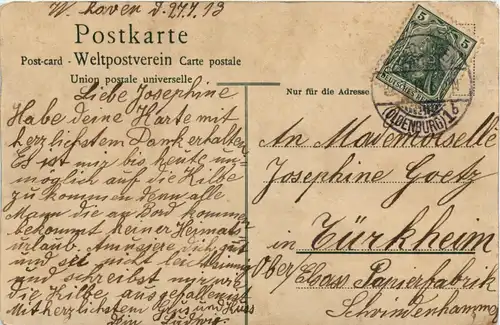 W'haven d. 27.7.13
Postkarte
Post-card - Weltpostverein Carte postale
Union postale universelle
Nur für die Adresse
5
5
DEUTSCHES REICH
(OLDENBURG) 1 b
Liebe Josephine
Habe deine Karte mit
herzlichstem Dank erhalten
Es ist mir bis heute un-
möglich auf die Kilbe
zu kommen denn alle
Mann die an Bord kommen
bekommt keiner Heimats
urlaub. Amusiere dich gut
und sei nicht leichtsinnig
und schreibst mir wie
die Kilbe ausgefallen ist
Mit herzlichstem Grus und Kuss
Dein Ludwig
An Mademoiselle
Josephine Goetz
in Türkheim
Ober Elsass Papierfabrik
Schwindenhammer